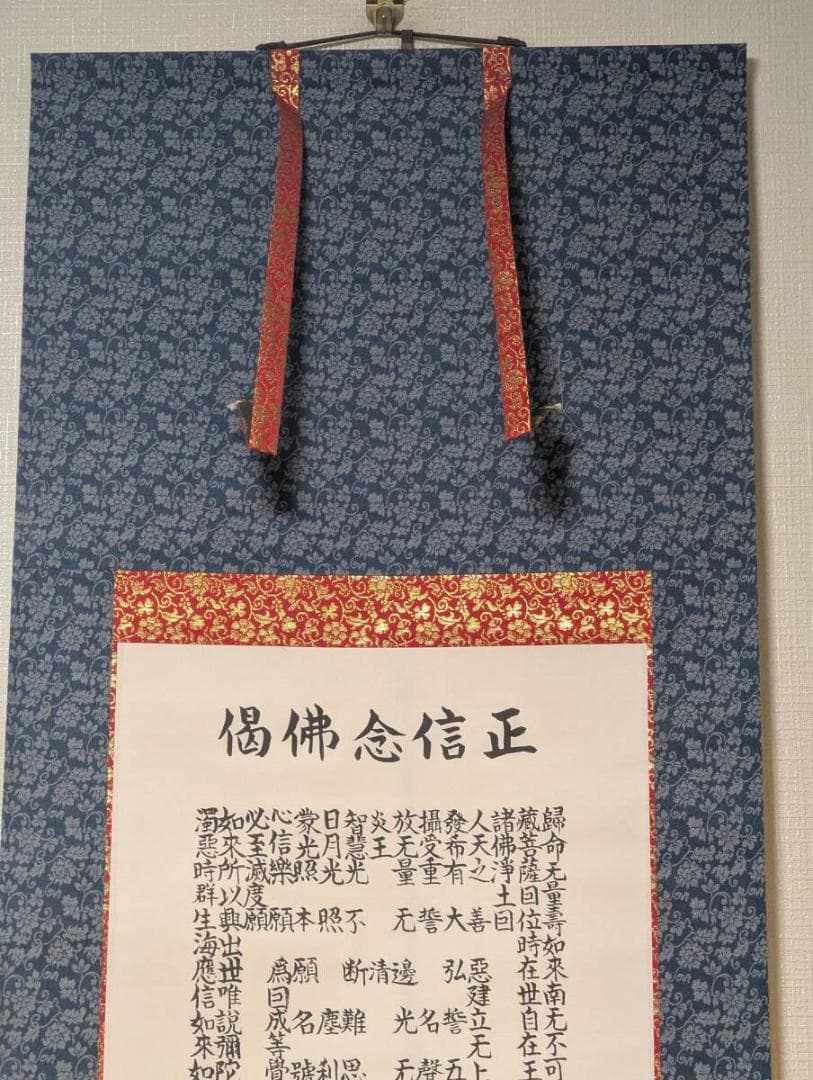 正信念佛偈
歸命无量壽如來南无不可
藏菩薩因位時在世自在王
諸佛淨土因
人天之善惡建立无上
發希有大弘誓五
攝受重誓名聲
放无量无邊光无
炎王清
智慧光不断難思
日月光照塵刹
蒙光照本願名號
心信樂願爲因成等覺
必至滅度願
如來所以興出世唯說彌陀
濁惡時群生海應信如來如